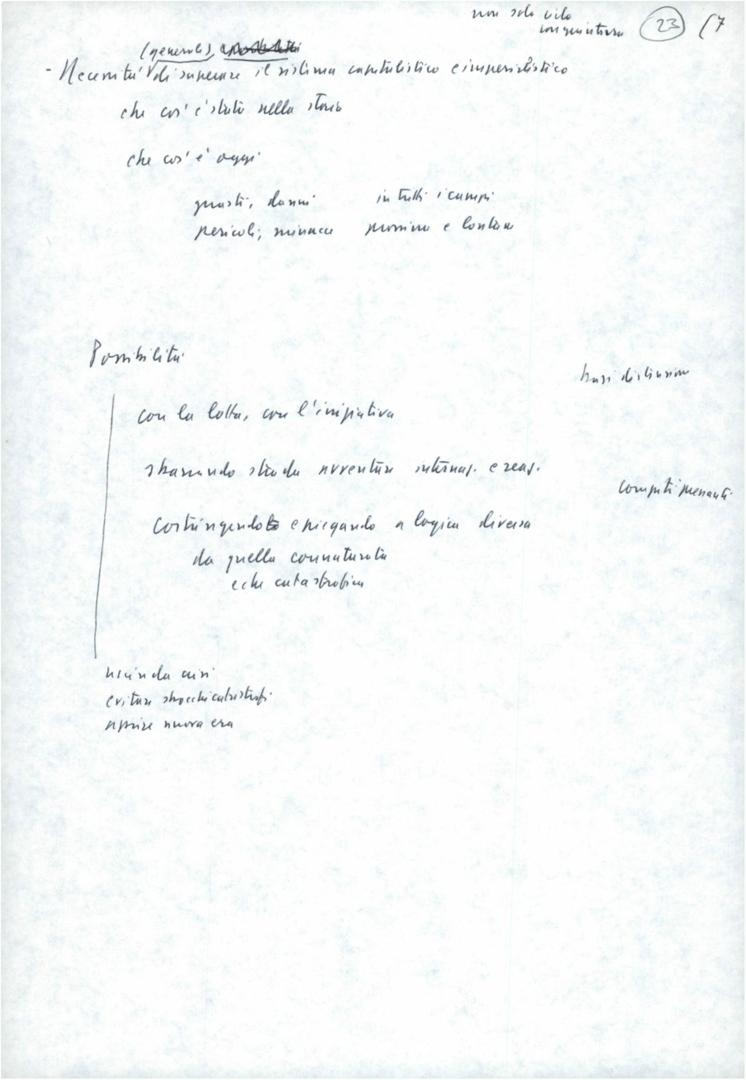 non solo vile
congiuntura
23 (7
(generale),
- Necessità di superare il sistema capitalistico e imperialistico
che cos'è stato nella storia
che cos'è oggi
guasti, danni in tutti i campi
pericoli, minacce prossime e lontane
Possibilità
basi di classe
con la lotta, con l'iniziativa
sbarrando strada avventure internaz. e reaz.
compiti pesanti
costringendolo e piegando a logica diversa
da quella connaturata
e che catastrofica
uscir da crisi
evitare sbocchi catastrofi
aprire nuova era